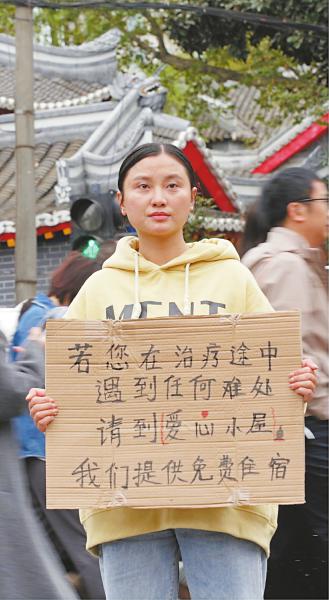 MENT
若您在治疗途中
遇到任何难处
请到爱心小屋
我们提供免费住宿